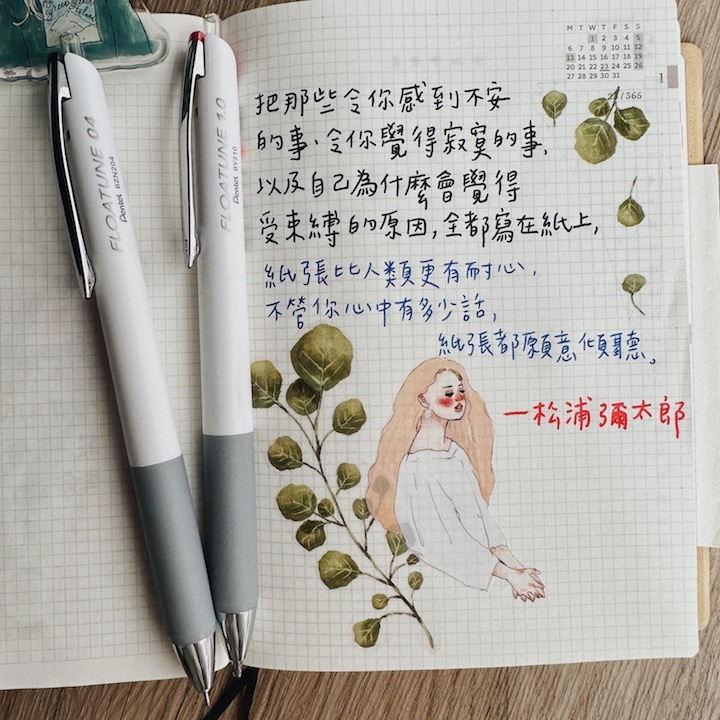 M T W T F S S
1 2 3 4 5
6 7 8 9 10 11 12
13 14 15 16 17 18 19
20 21 22 23 24 25 26
27 28 29 30 31
1
/ 365
把那些令你感到不安
的事、令你覺得寂寞的事,
以及自己為什麼會覺得
受束縛的原因,全都寫在紙上,
紙張比人類更有耐心,
不管你心中有多少話,
紙張都願意傾聽。
—松浦彌太郎
FLOATUNE 04
Pentel BZN204
FLOATUNE 1.0
Pentel BY210